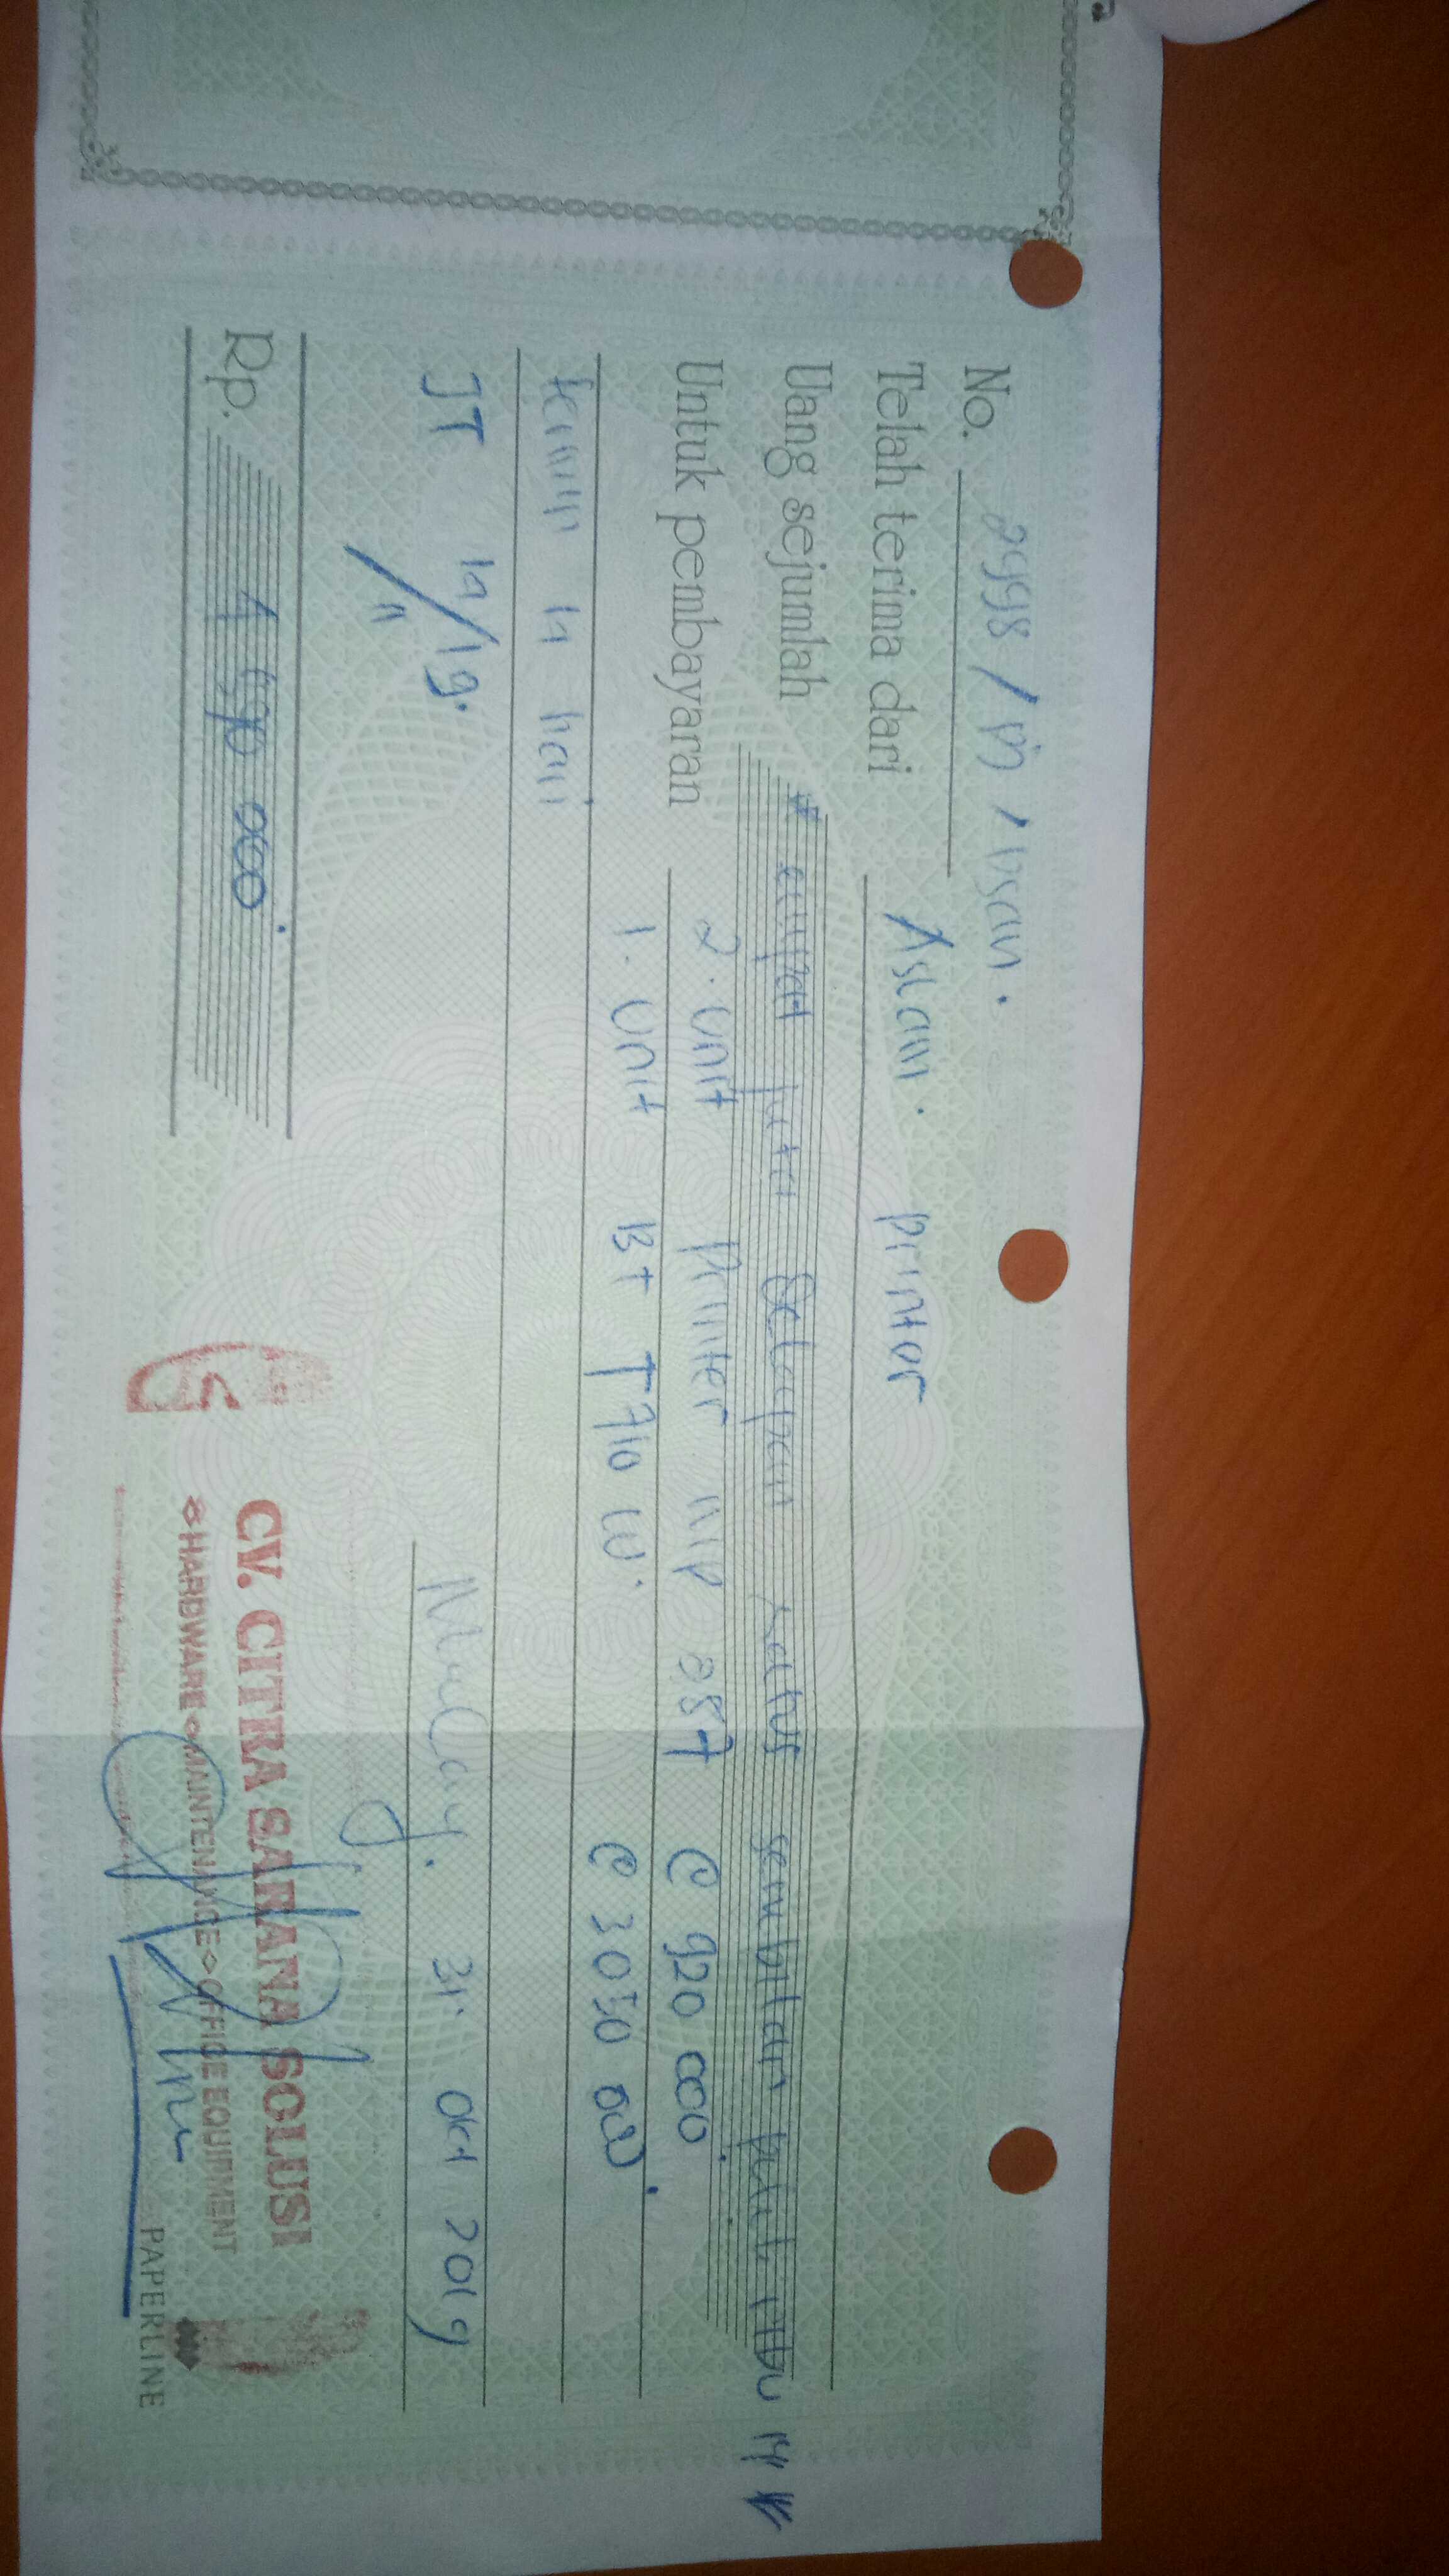 No. 2998 / / Insan.
Telah terima dari Aslam. printer
Uang sejumlah # empat juta Delapan ratus sembilan puluh ribu
Untuk pembayaran 2. unit Printer MP 287 @ 920 000
1. Unit BT T 710 W. @ 3 050 000
hari
JT 14/19. 11
Malang, 31 Okt 2019
Rp. 4 890 000
CV. CITRA SARANA SOLUSI
HARDWARE MAINTENANCE OFFICE EQUIPMENT
PAPERLINE